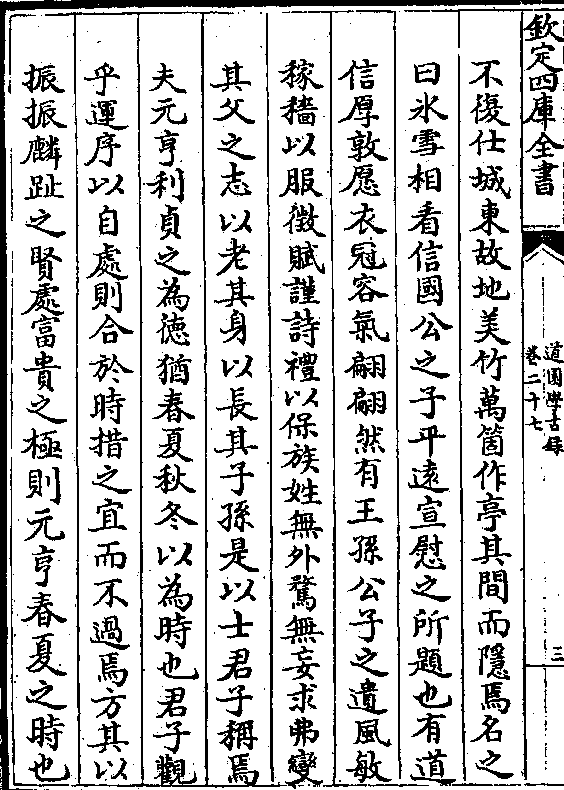 欽定四庫全書
道園學古錄
卷二十七
三
不復仕城東故地美竹萬箇作亭其間而隱焉名之
曰氷雪相看信國公之子平逺宣慰之所題也有道
信厚敦愿衣冠容氣翩翩然有王孫公子之遺風敏
稼穡以服徵賦謹詩禮以保族姓無外騖無妄求弗變
其父之志以老其身以長其子孫是以士君子稱焉
夫元亨利貞之為徳猶春夏秋冬以為時也君子觀
乎運序以自處則合於時措之宜而不過焉方其以
振振麟趾之賢處富貴之極則元亨春夏之時也